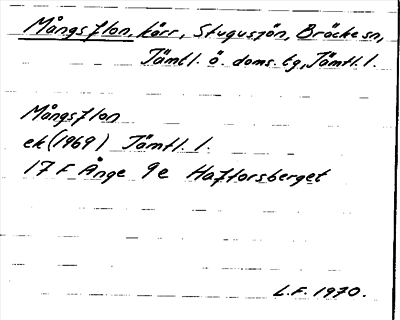 Mångsflon, kärr, Stugusjön, Bräcke sn,
Jämtl. ö. doms. tg, Jämtl. l.
Mångsflon
ek (1969) Jämtl. l.
17 F Ånge 9e Haftorsberget
L.F. 1970.